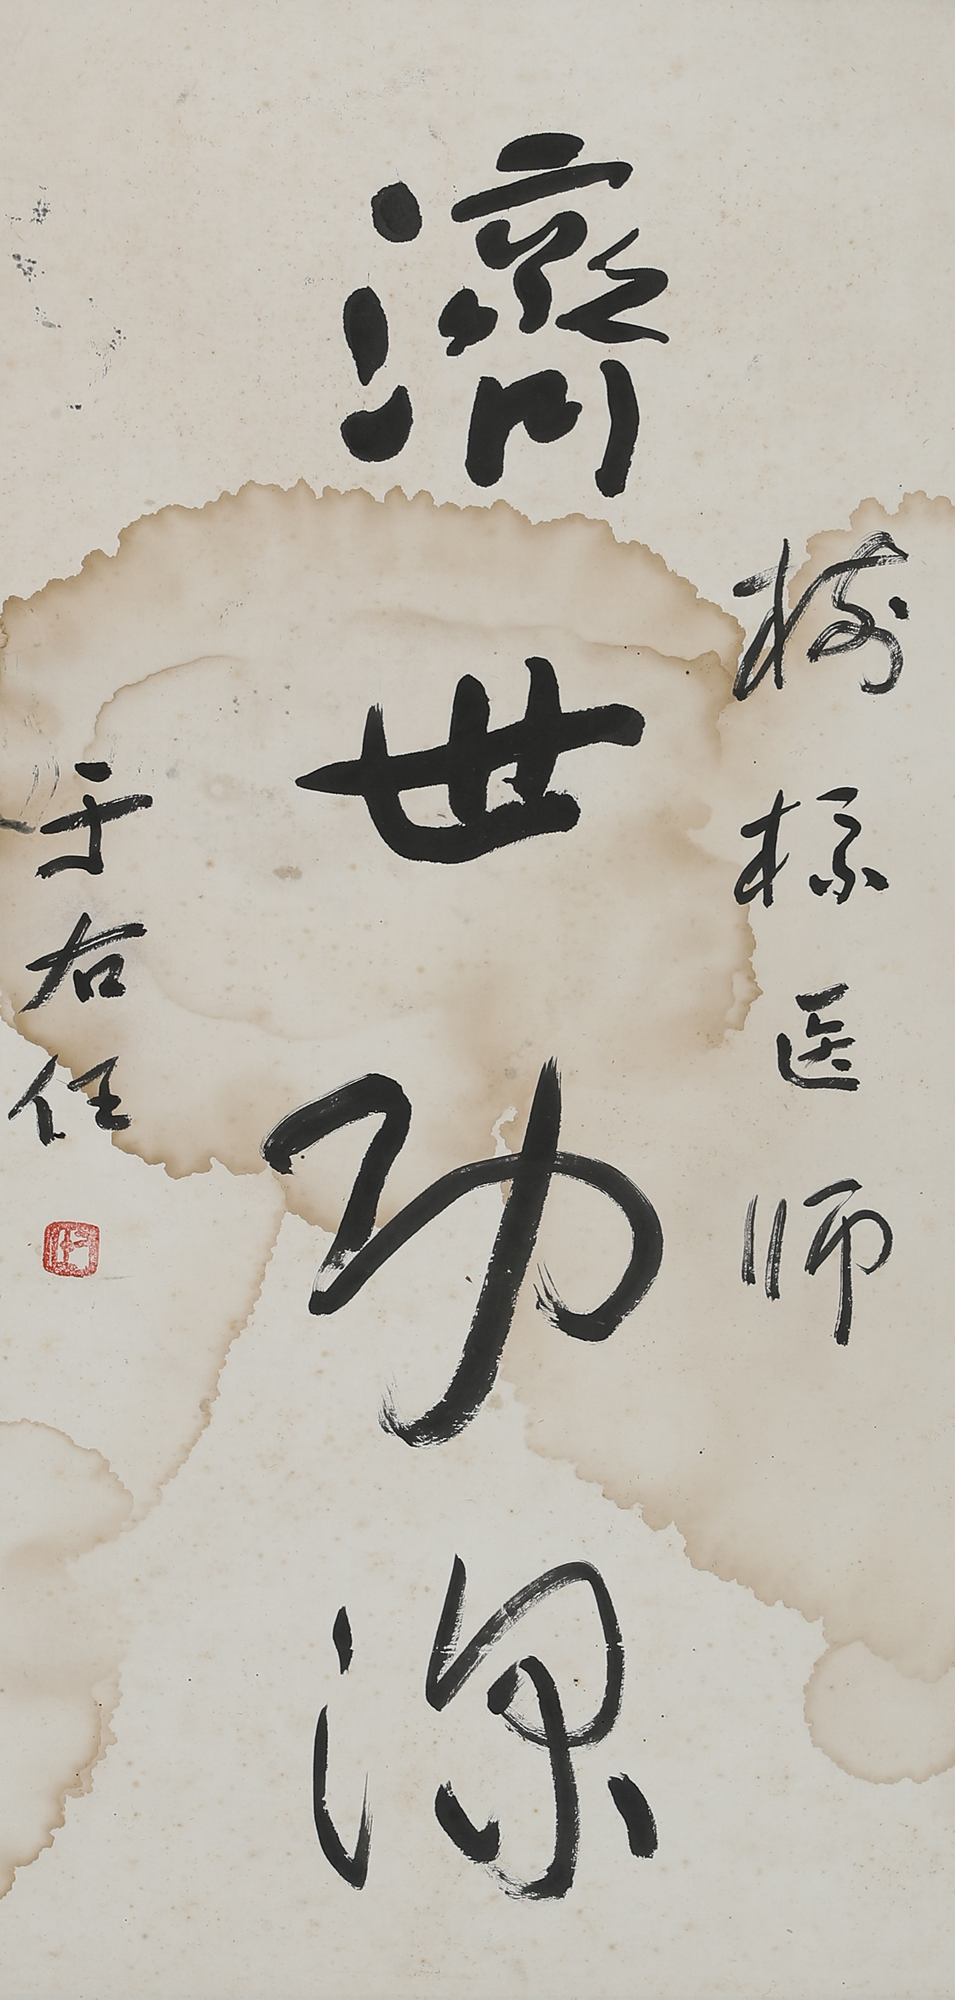 樹標医师
濟世功深
于右任